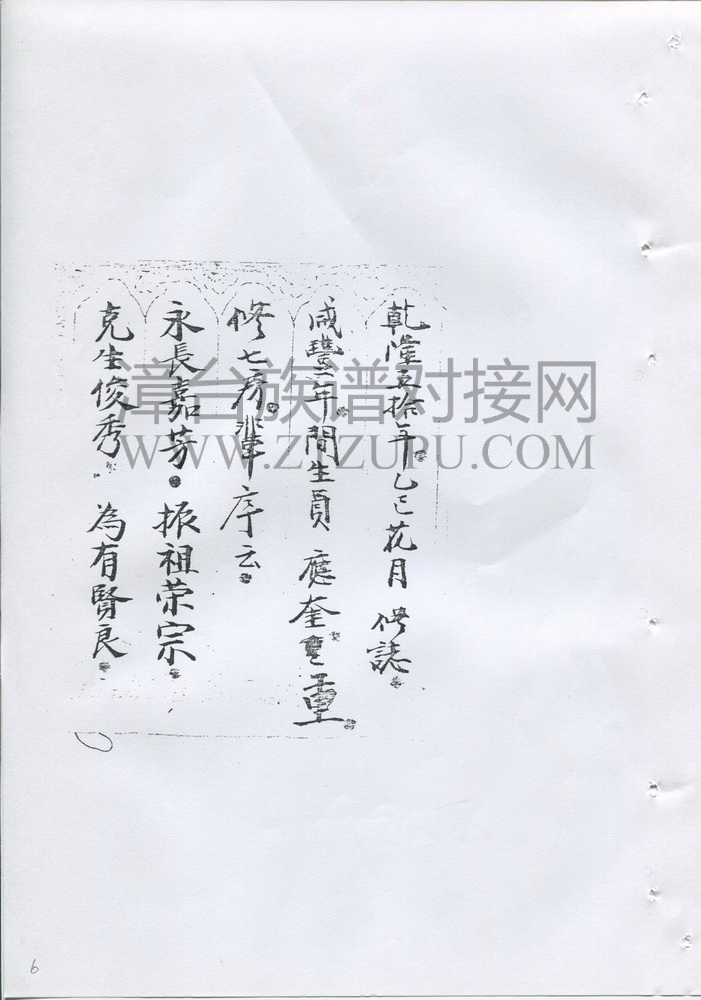 乾隆五拾年。乙巳花月 修誌。
咸豐二年。間生員 應奎。重。
修七房。輩序云。
永長嘉芳。振祖荣宗。
克生俊秀。為有賢良。
漳台族谱对接网
WWW.ZTZUPU.COM
6